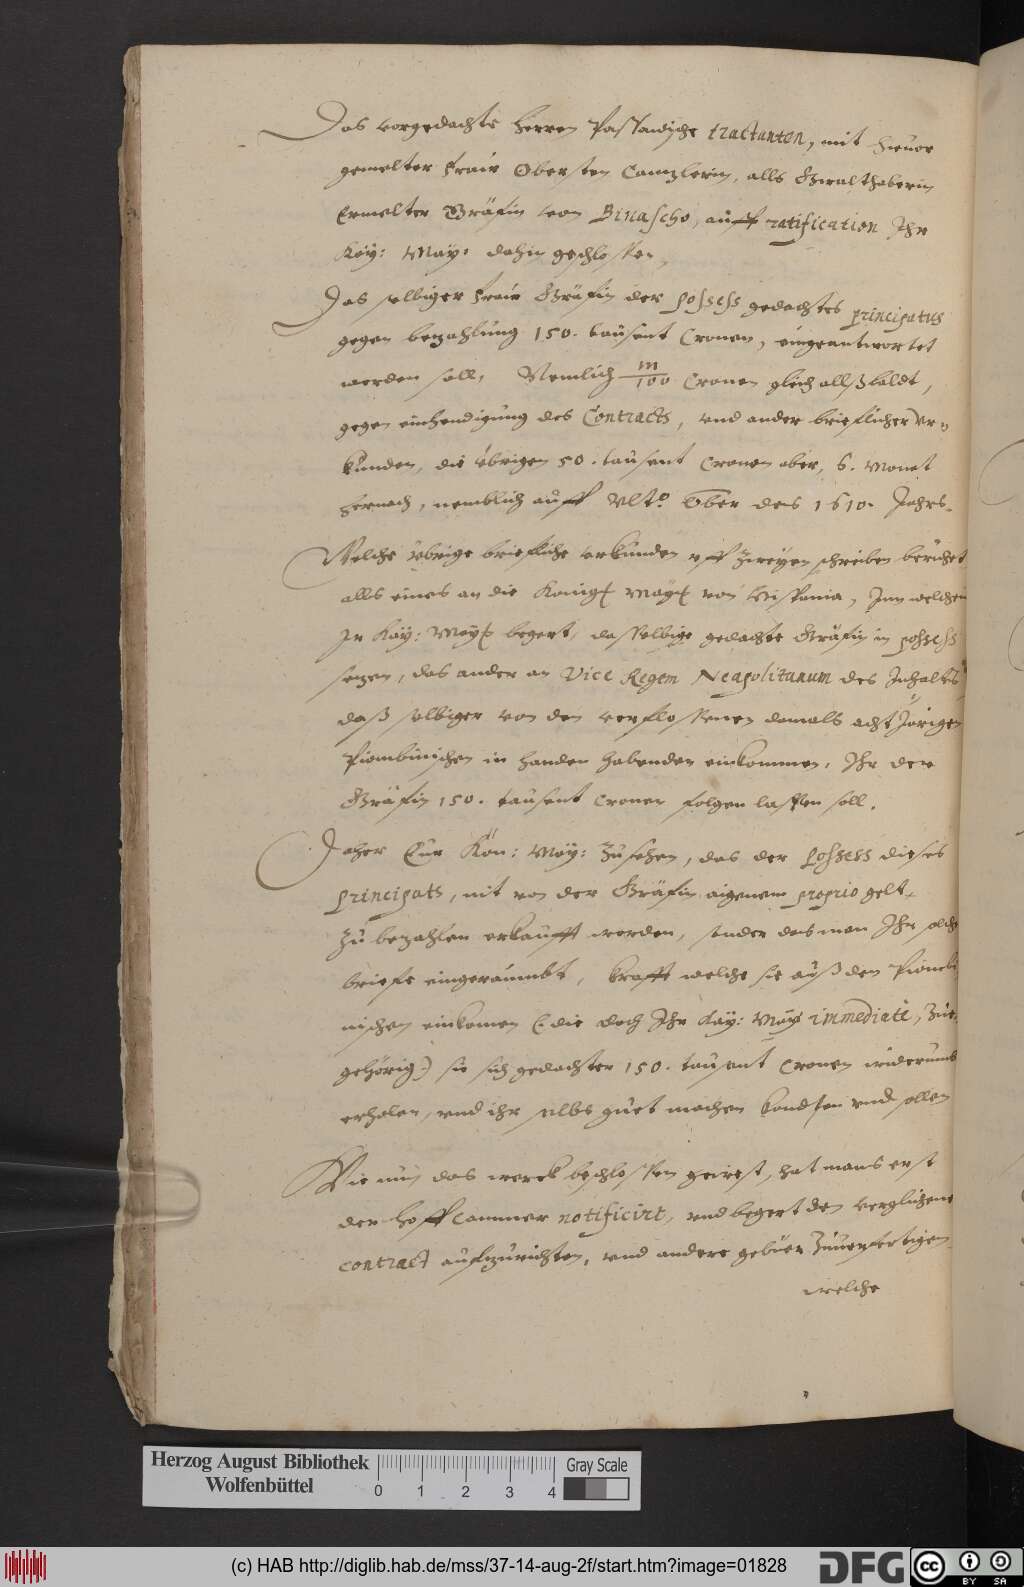 Das vorgedachte herren Passawische tractanten, mit hieuor
gemelter Fraw Obersten Canzlerin, alls Gwalthaberin
Ermelter Gräfin von Binascho, auff ratification Ihr
Kay: May: dahin geschlossen,
Das selbiger Fraw Gräfin der possess gedachtes principatus
gegen bezahlung 150. tausent Cronen, eingeantwortet
werden soll, Nemlich m/100 Cronen gleich allßbaldt,
gegen einhendigung des Contracts, vnd ander brieflicher Vr⸗
kunden, die übrigen 50. tausent Cronen aber, 6. Monat
hernach, nemblich auff Vlto. Ober des 1610. Jahrs.
Welche übrige briefliche vrkunden vff zweyen schreiben beruhet
alls eines an die König. May. von Hispania, Inn welchem
Ir Kay: May: begert, dasselbige gedachte Gräfin in possess
setzen, das ander an Vice Regem Neapolitanum des Inhalts
daß selbiger von den verflossenen damals acht Järigen
Piombinischen in handen habenden einkommen, Ihr der
Gräfin 150. tausent Cronen folgen lassen soll.
Daher Eur Kön: May: zusehen, das der possess dieses
principats, nit von der Gräfin aigenem proprio gelt⸗
zu bezahlen erkaufft worden, sonder das man Ihr solche
briefe eingeraumbt, krafft welche sie auß den Piombi
nischen einkomen (:die doch Ihr Kay: May immediatè, zue⸗
gehörig:) sie sich gedachter 150. tausent Cronen widerumb
erholen, vnd ihr selbs guet machen kondten vnd sollen
Wie nun das werck beschlossen gewest, hat mans erst
der hoff Cammer notificirt, vnd begert den verglichene
contract aufzurichten, vnd andere gebüer zuuerfertigen
welche
Herzog August Bibliothek
Wolfenbüttel
0 1 2 3 4
Gray Scale
(c) HAB http://diglib.hab.de/mss/37-14-aug-2f/start.htm?image=01828
DFG
cc BY SA